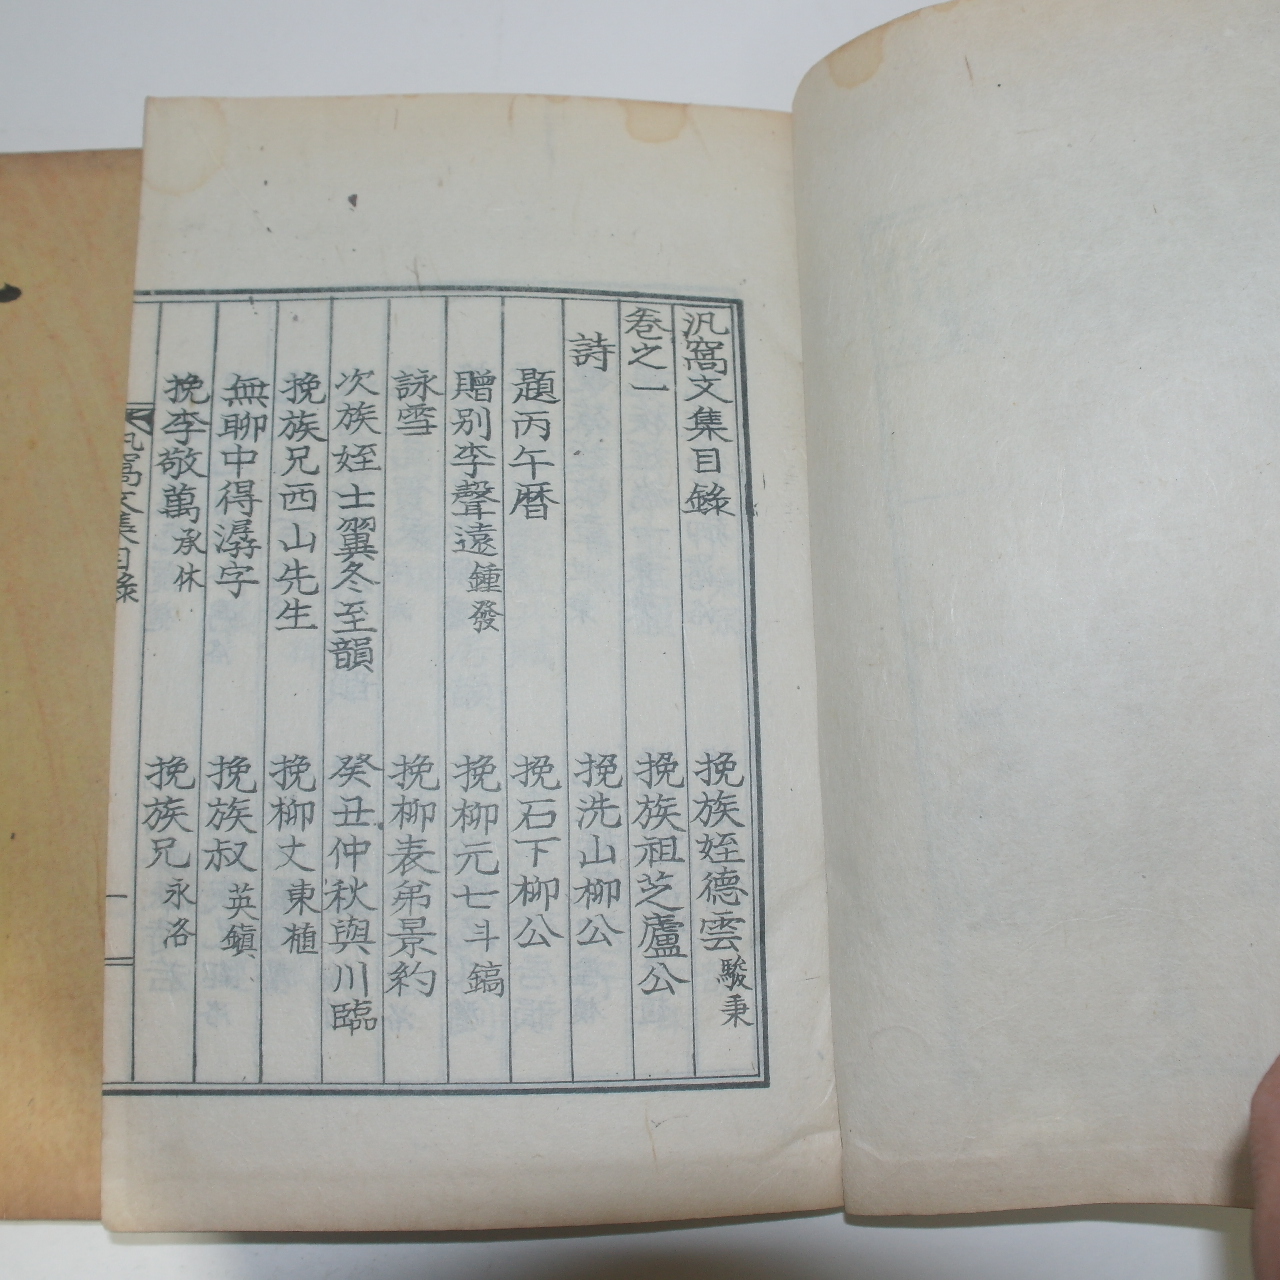 汎窩文集目錄
挽族姪德雲駿秉
卷之一
挽族祖芝廬公
詩
挽洗山柳公
題丙午曆
挽石下柳公
贈別李聲遠鍾發
挽柳元七斗鎬
詠雪
挽柳表弟景約
次族姪士翼冬至韻
癸丑仲秋與川臨
挽族兄西山先生
挽柳丈東植
無聊中得潺字
挽族叔英鎭
挽李敬萬承休
挽族兄永洛
汎窩文集目錄
一